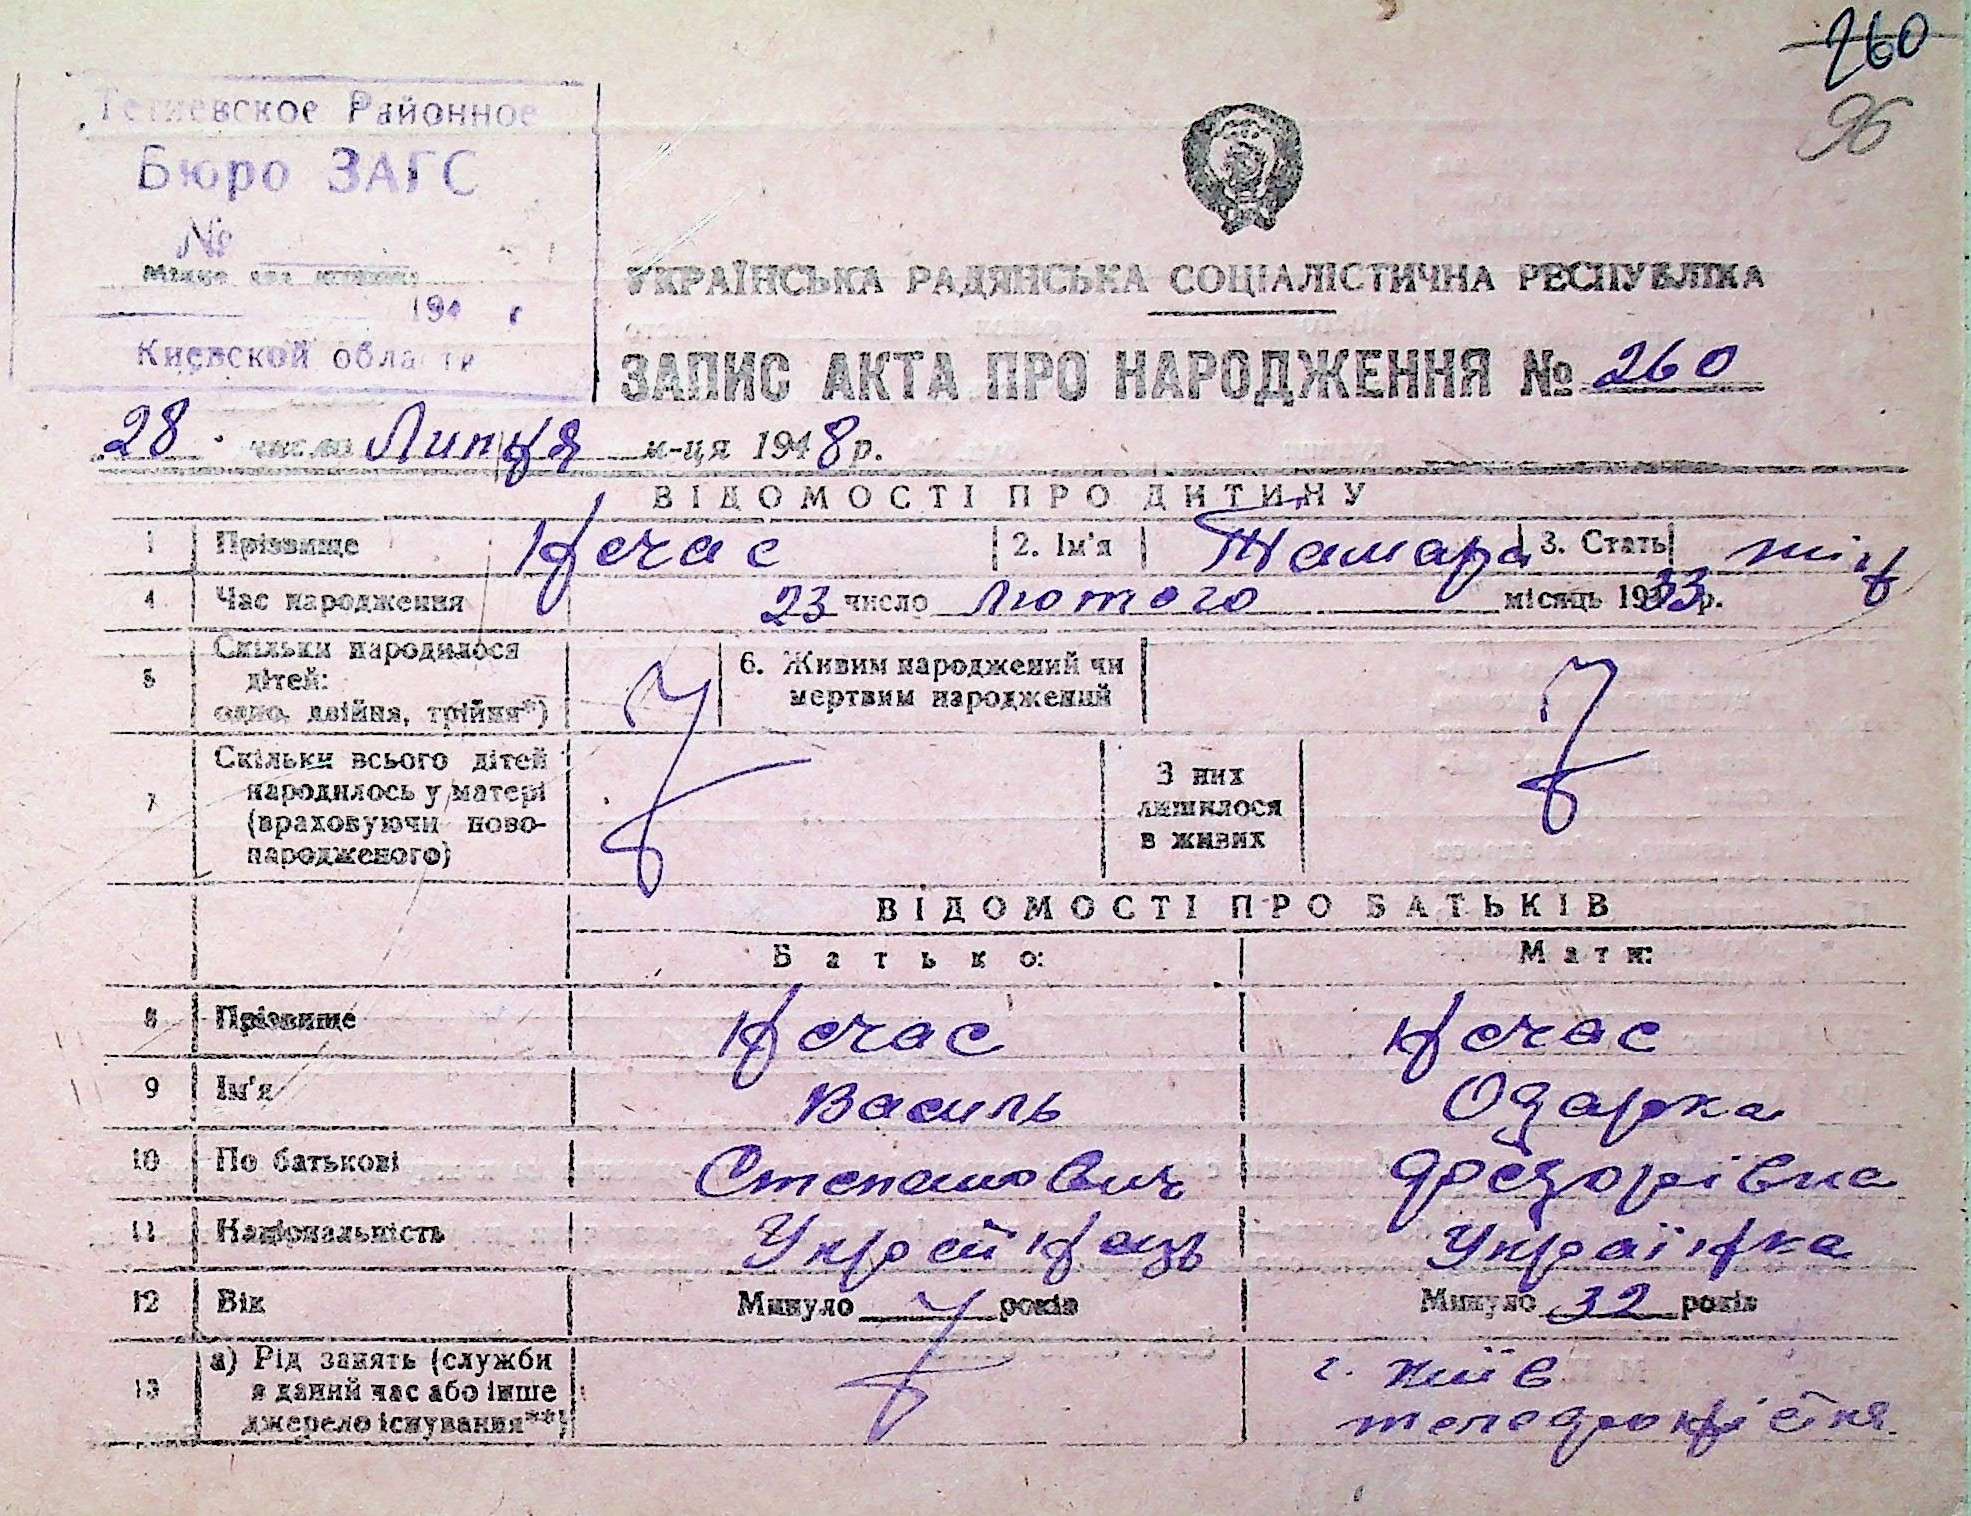 260
96
Тетиевское Районное
Бюро ЗАГС
№
194 г
Киевской области
УКРАЇНСЬКА РАДЯНСЬКА СОЦІАЛІСТИЧНА РЕСПУБЛІКА
ЗАПИС АКТА ПРО НАРОДЖЕННЯ № 260
28 число Липня м-ця 1948 р.
ВІДОМОСТІ ПРО ДИТИНУ
1 Прізвище Нечас 2. Ім'я Тамара 3. Стать жін
4 Час народження 23 число Лютого місяць 1933 р.
5 Скільки народилося дітей: одно, двійня, трійня*) 6. Живим народжений чи мертвим народжений
7 Скільки всього дітей народилось у матері (враховуючи новонародженого) З них лишилося в живих
ВІДОМОСТІ ПРО БАТЬКІВ
Батько: Мати:
8 Прізвище Нечас Нечас
9 Ім'я Василь Одарка
10 По батькові Степанович Федорівна
11 Національність Українець Українка
12 Вік Минуло років Минуло 32 років
13 а) Рід занять (служби в даний час або інше джерело існування**)
г. Київ